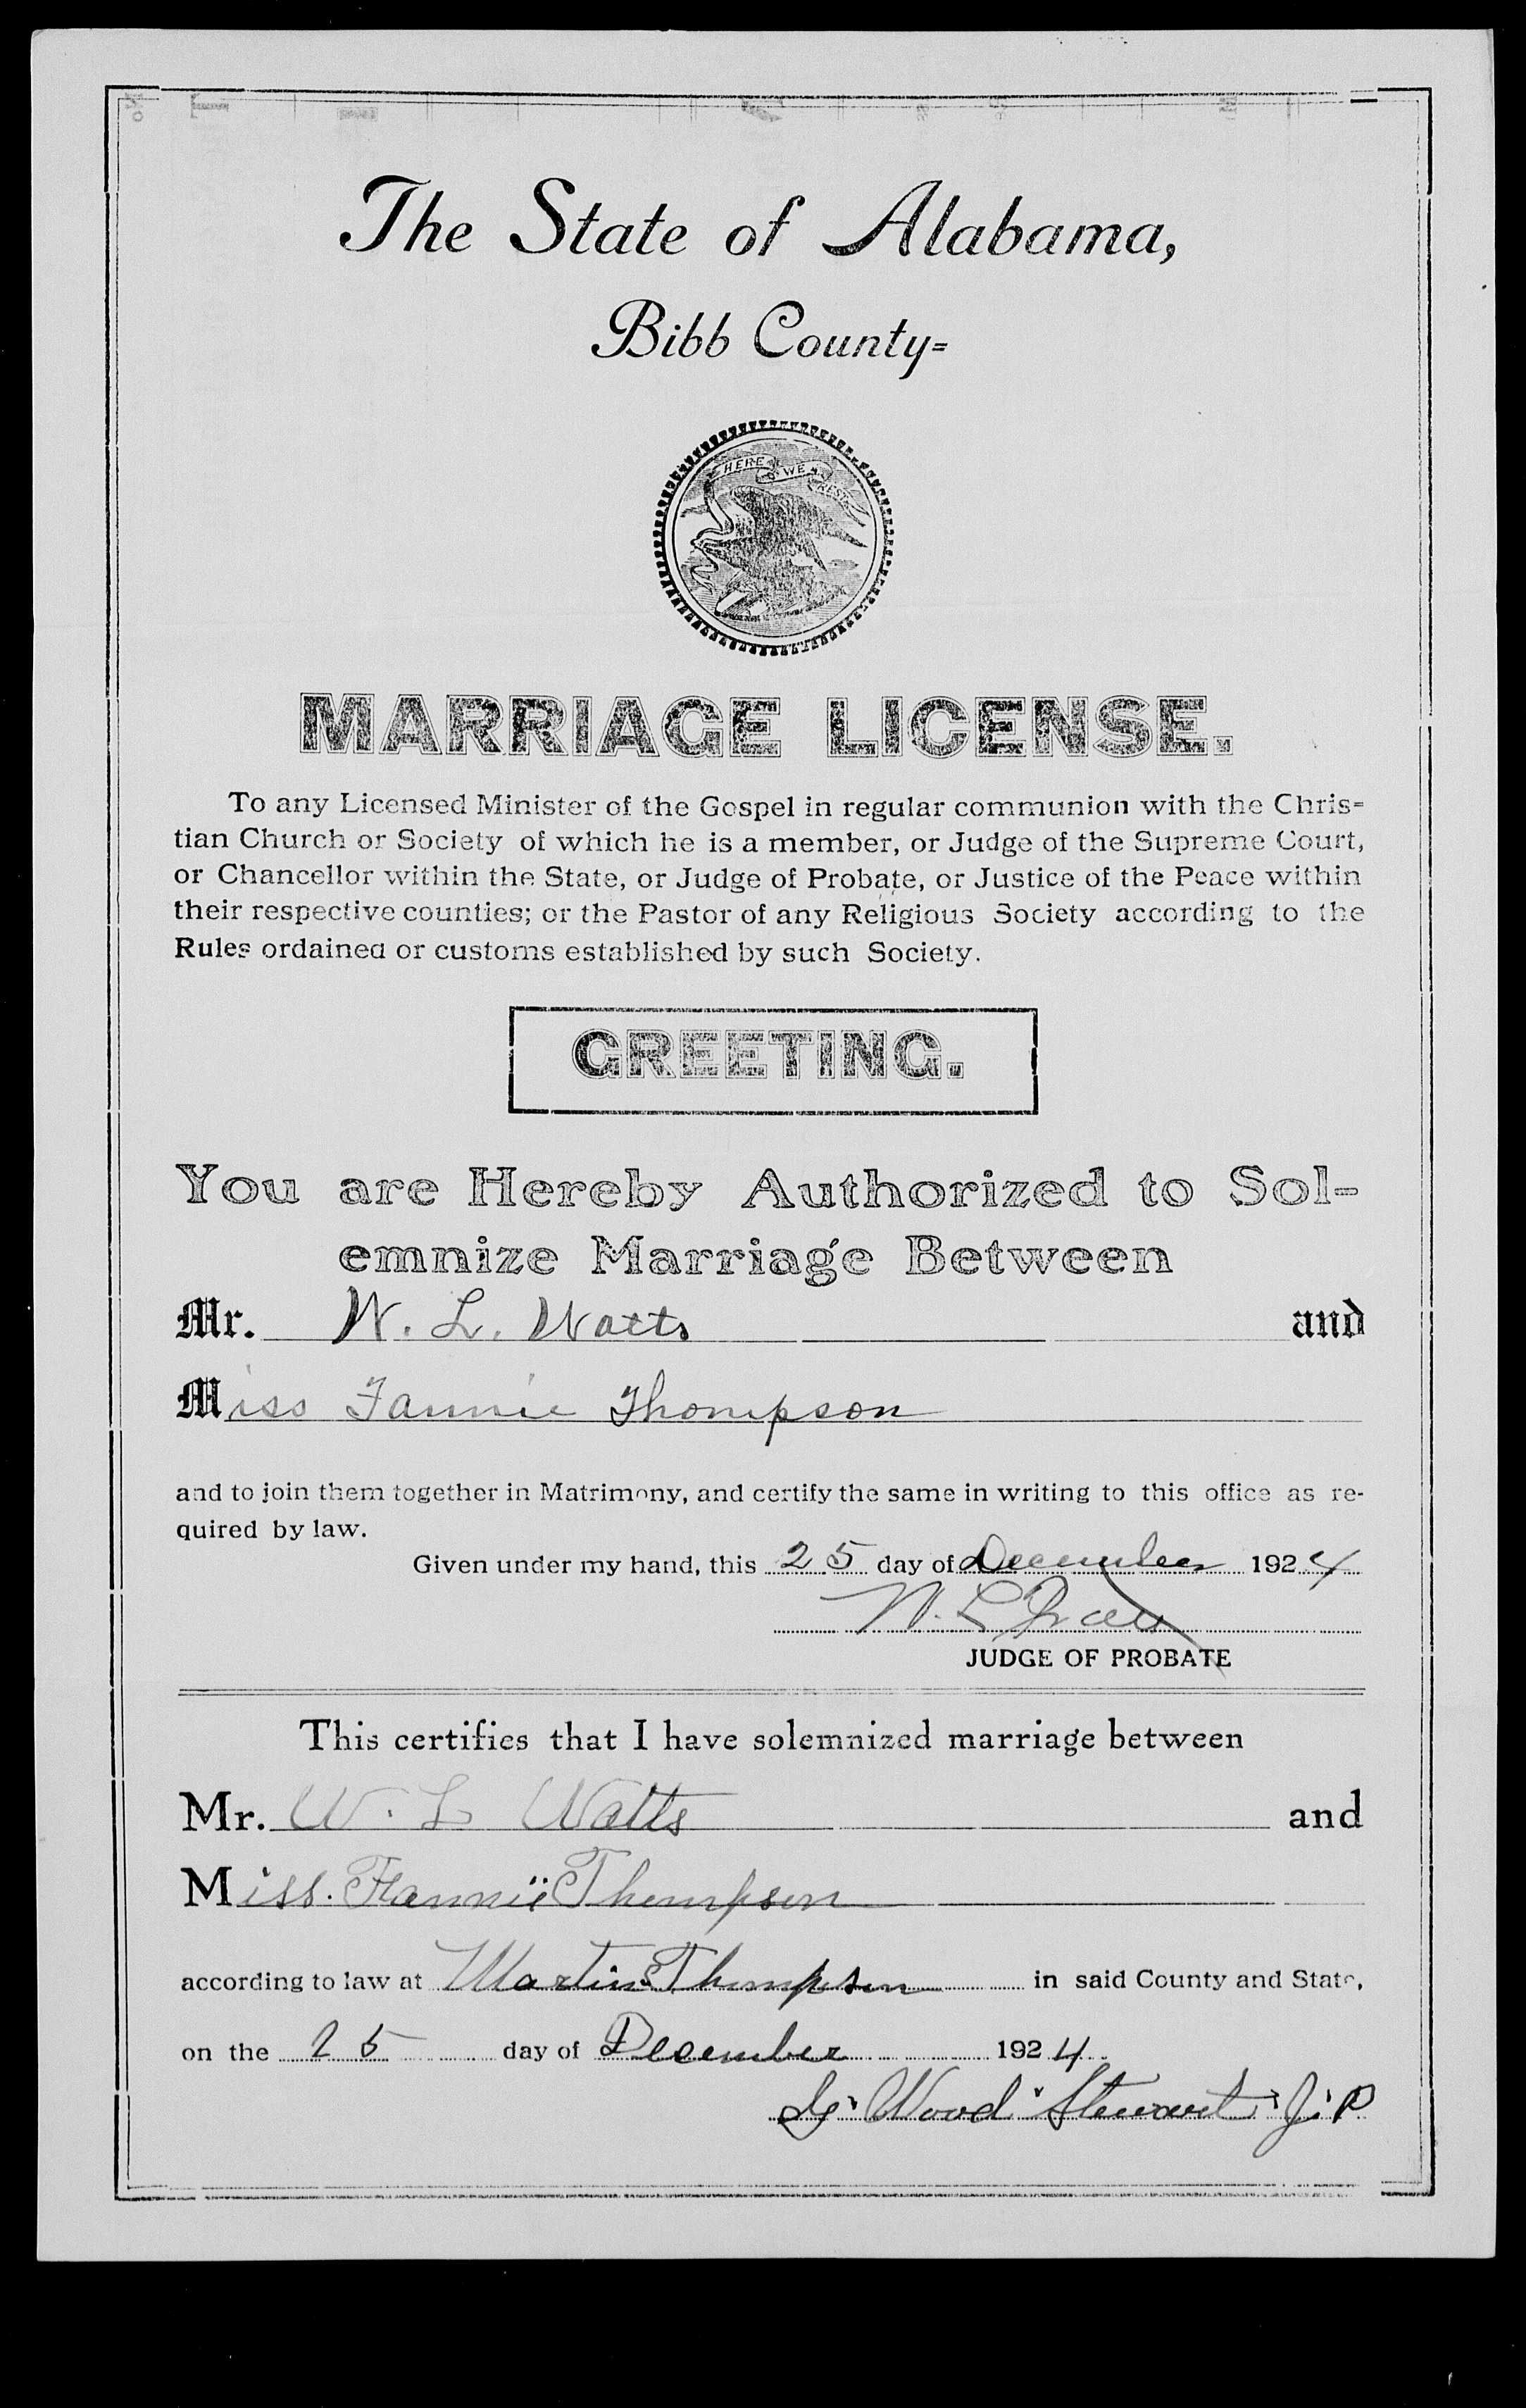 The State of Alabama,
Bibb County=
HERE WE REST
MARRIAGE LICENSE.
To any Licensed Minister of the Gospel in regular communion with the Chris=
tian Church or Society of which he is a member, or Judge of the Supreme Court,
or Chancellor within the State, or Judge of Probate, or Justice of the Peace within
their respective counties; or the Pastor of any Religious Society according to the
Rules ordained or customs established by such Society.
GREETING.
You are Hereby Authorized to Sol-
emnize Marriage Between
Mr. W. L. Watts and
Miss Fannie Thompson
and to join them together in Matrimony, and certify the same in writing to this office as re-
quired by law.
Given under my hand, this 25 day of December 1924
W. L.
JUDGE OF PROBATE
This certifies that I have solemnized marriage between
Mr. W. L Watts and
Miss. Fannie Thompson
according to law at Martin Thompson in said County and State,
on the 25 day of December 1924
Wood Stewart J. P